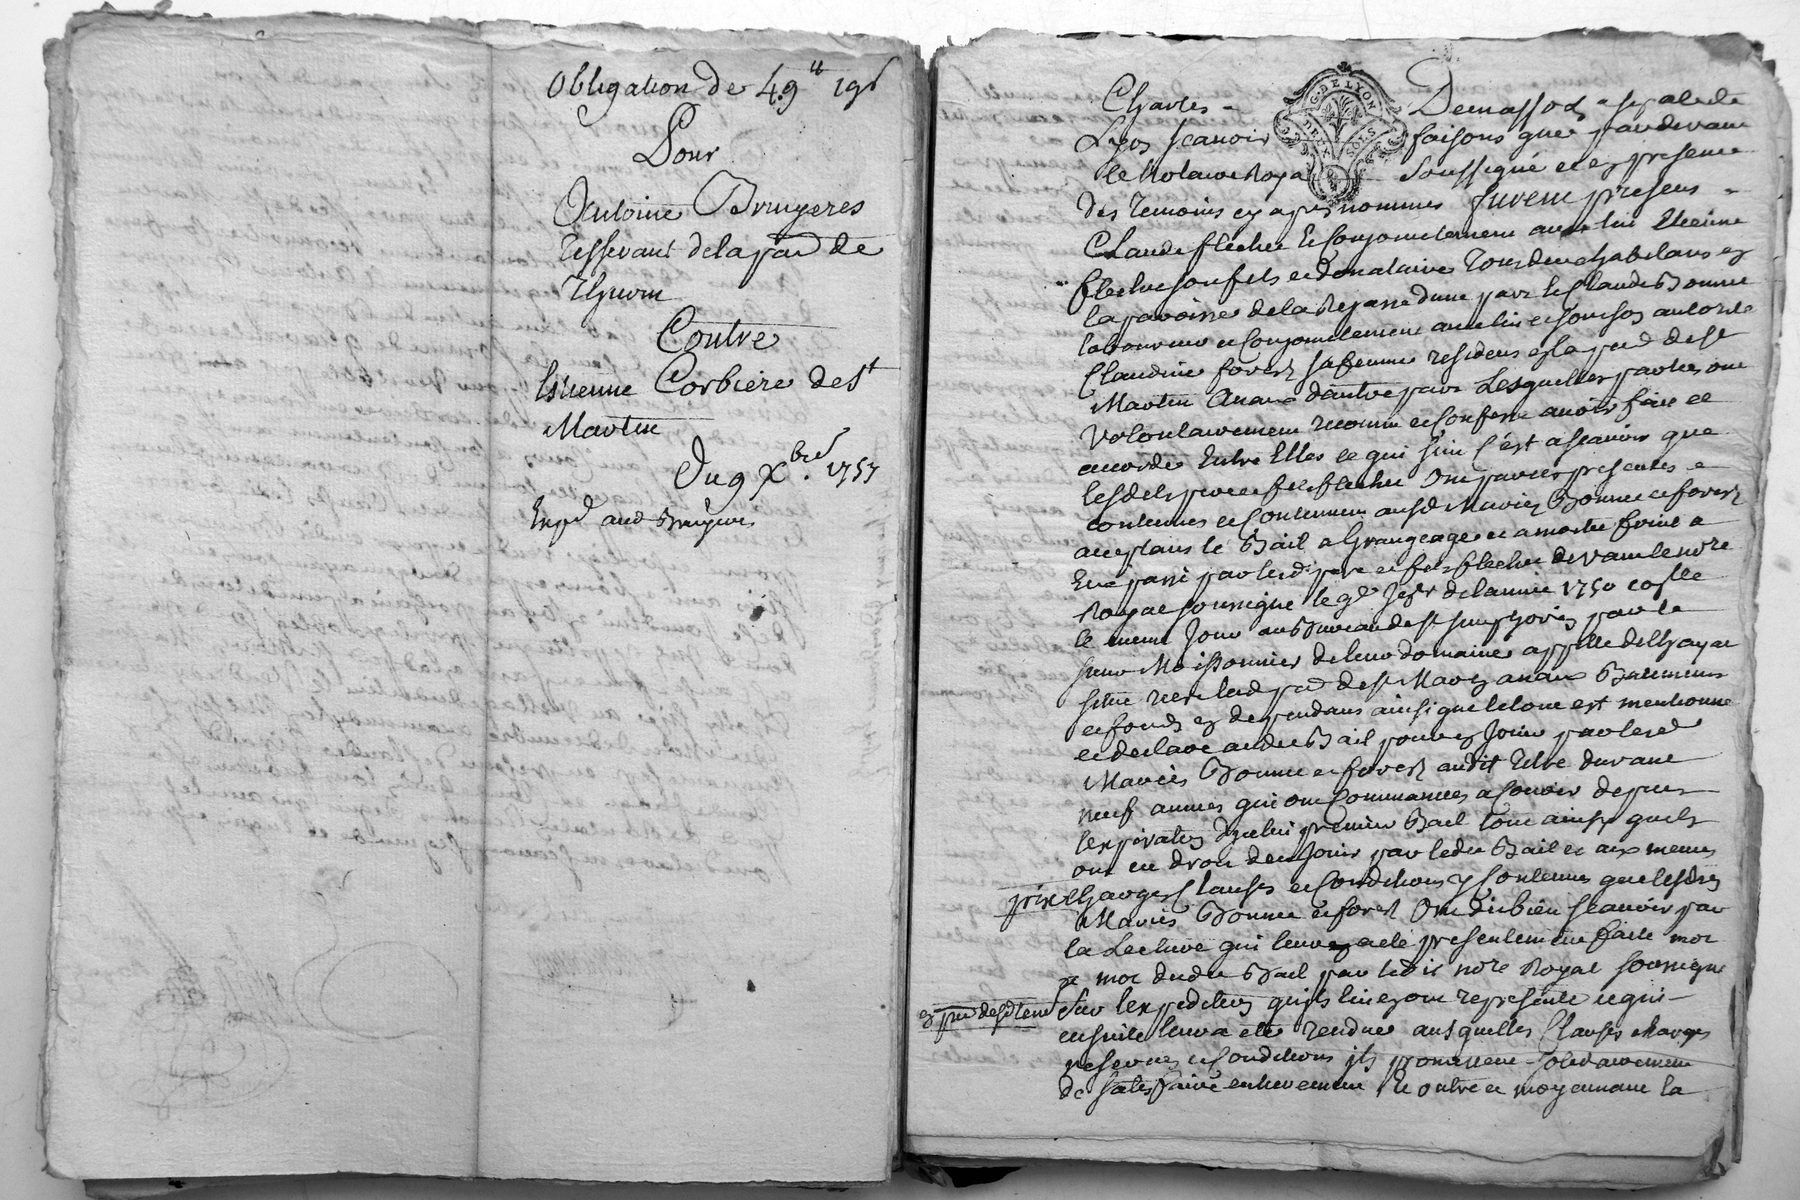 Obligation de 49ᵗᵗ 19ˢ
Pour
Antoine Bruyeres
Tisserant de la par de
Thurin
Contre
Estienne Corbiere de St
Martin
Du 9 Xbre 1757
Exp aud Bruyeres
Charles Demassod
Lyon scavoir faisons que pardevant
le Notaire Royal soussigné et en presence
des temoins cy apres nommes furent presens
Claude flechet et conjointement avec lui Etienne
flechet son fils et donataire tous deux habitans en
la paroisse de la d'une part et Claude Bonnet
laboureur et conjointement avec lui et sous son autorité
Claudine forest sa femme residens en la par de st
Martin d'autre part Lesquelles parties ont
volontairement reconnu et confessé avoir fait et
accordé Entre Elles ce qui suit c'est a scavoir que
lesdits pere et fils flechet ont par ces presentes
continués et continuent ausd Mariés Bonnet et forest
acceptans le Bail a Grangeage
passé par lesd pere et fils flechet devant le nore
Royal soussigné le 9e de l'année 1750
le meme jour au Bureau de st simphorien par le
sieur de leur domaine appellé
situé rière lad par de st Martin Batimens
et fonds en dependans ainsi que le tout est mentionné
et declaré audit Bail pour en jouir par lesd
Mariés Bonnet et forest audit titre durant
neuf années qui ont commancées a courir depuis
l'expiration du premier Bail tout ainsy quils
ont eu droit d'en jouir par ledit Bail et aux memes
prix Charges Clauses et Conditions y contenues que lesdits
Mariés Bonnet et forest ont dit bien scavoir par
la Lecture qui leur en a été presentement faite mot
a mot dudit Bail par ledit nore Royal soussigné
en pnce desd tem sur l'expedition qu'ils lui en ont representé et qui
ensuite leur a eté rendue ausquelles Clauses charges
reserves et conditions ils promettent solidairement
de satisfaire entierement Et outre ce moyennant la